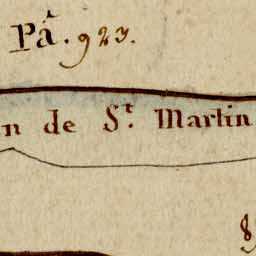 Pâ. 923.
n de S.t Martin